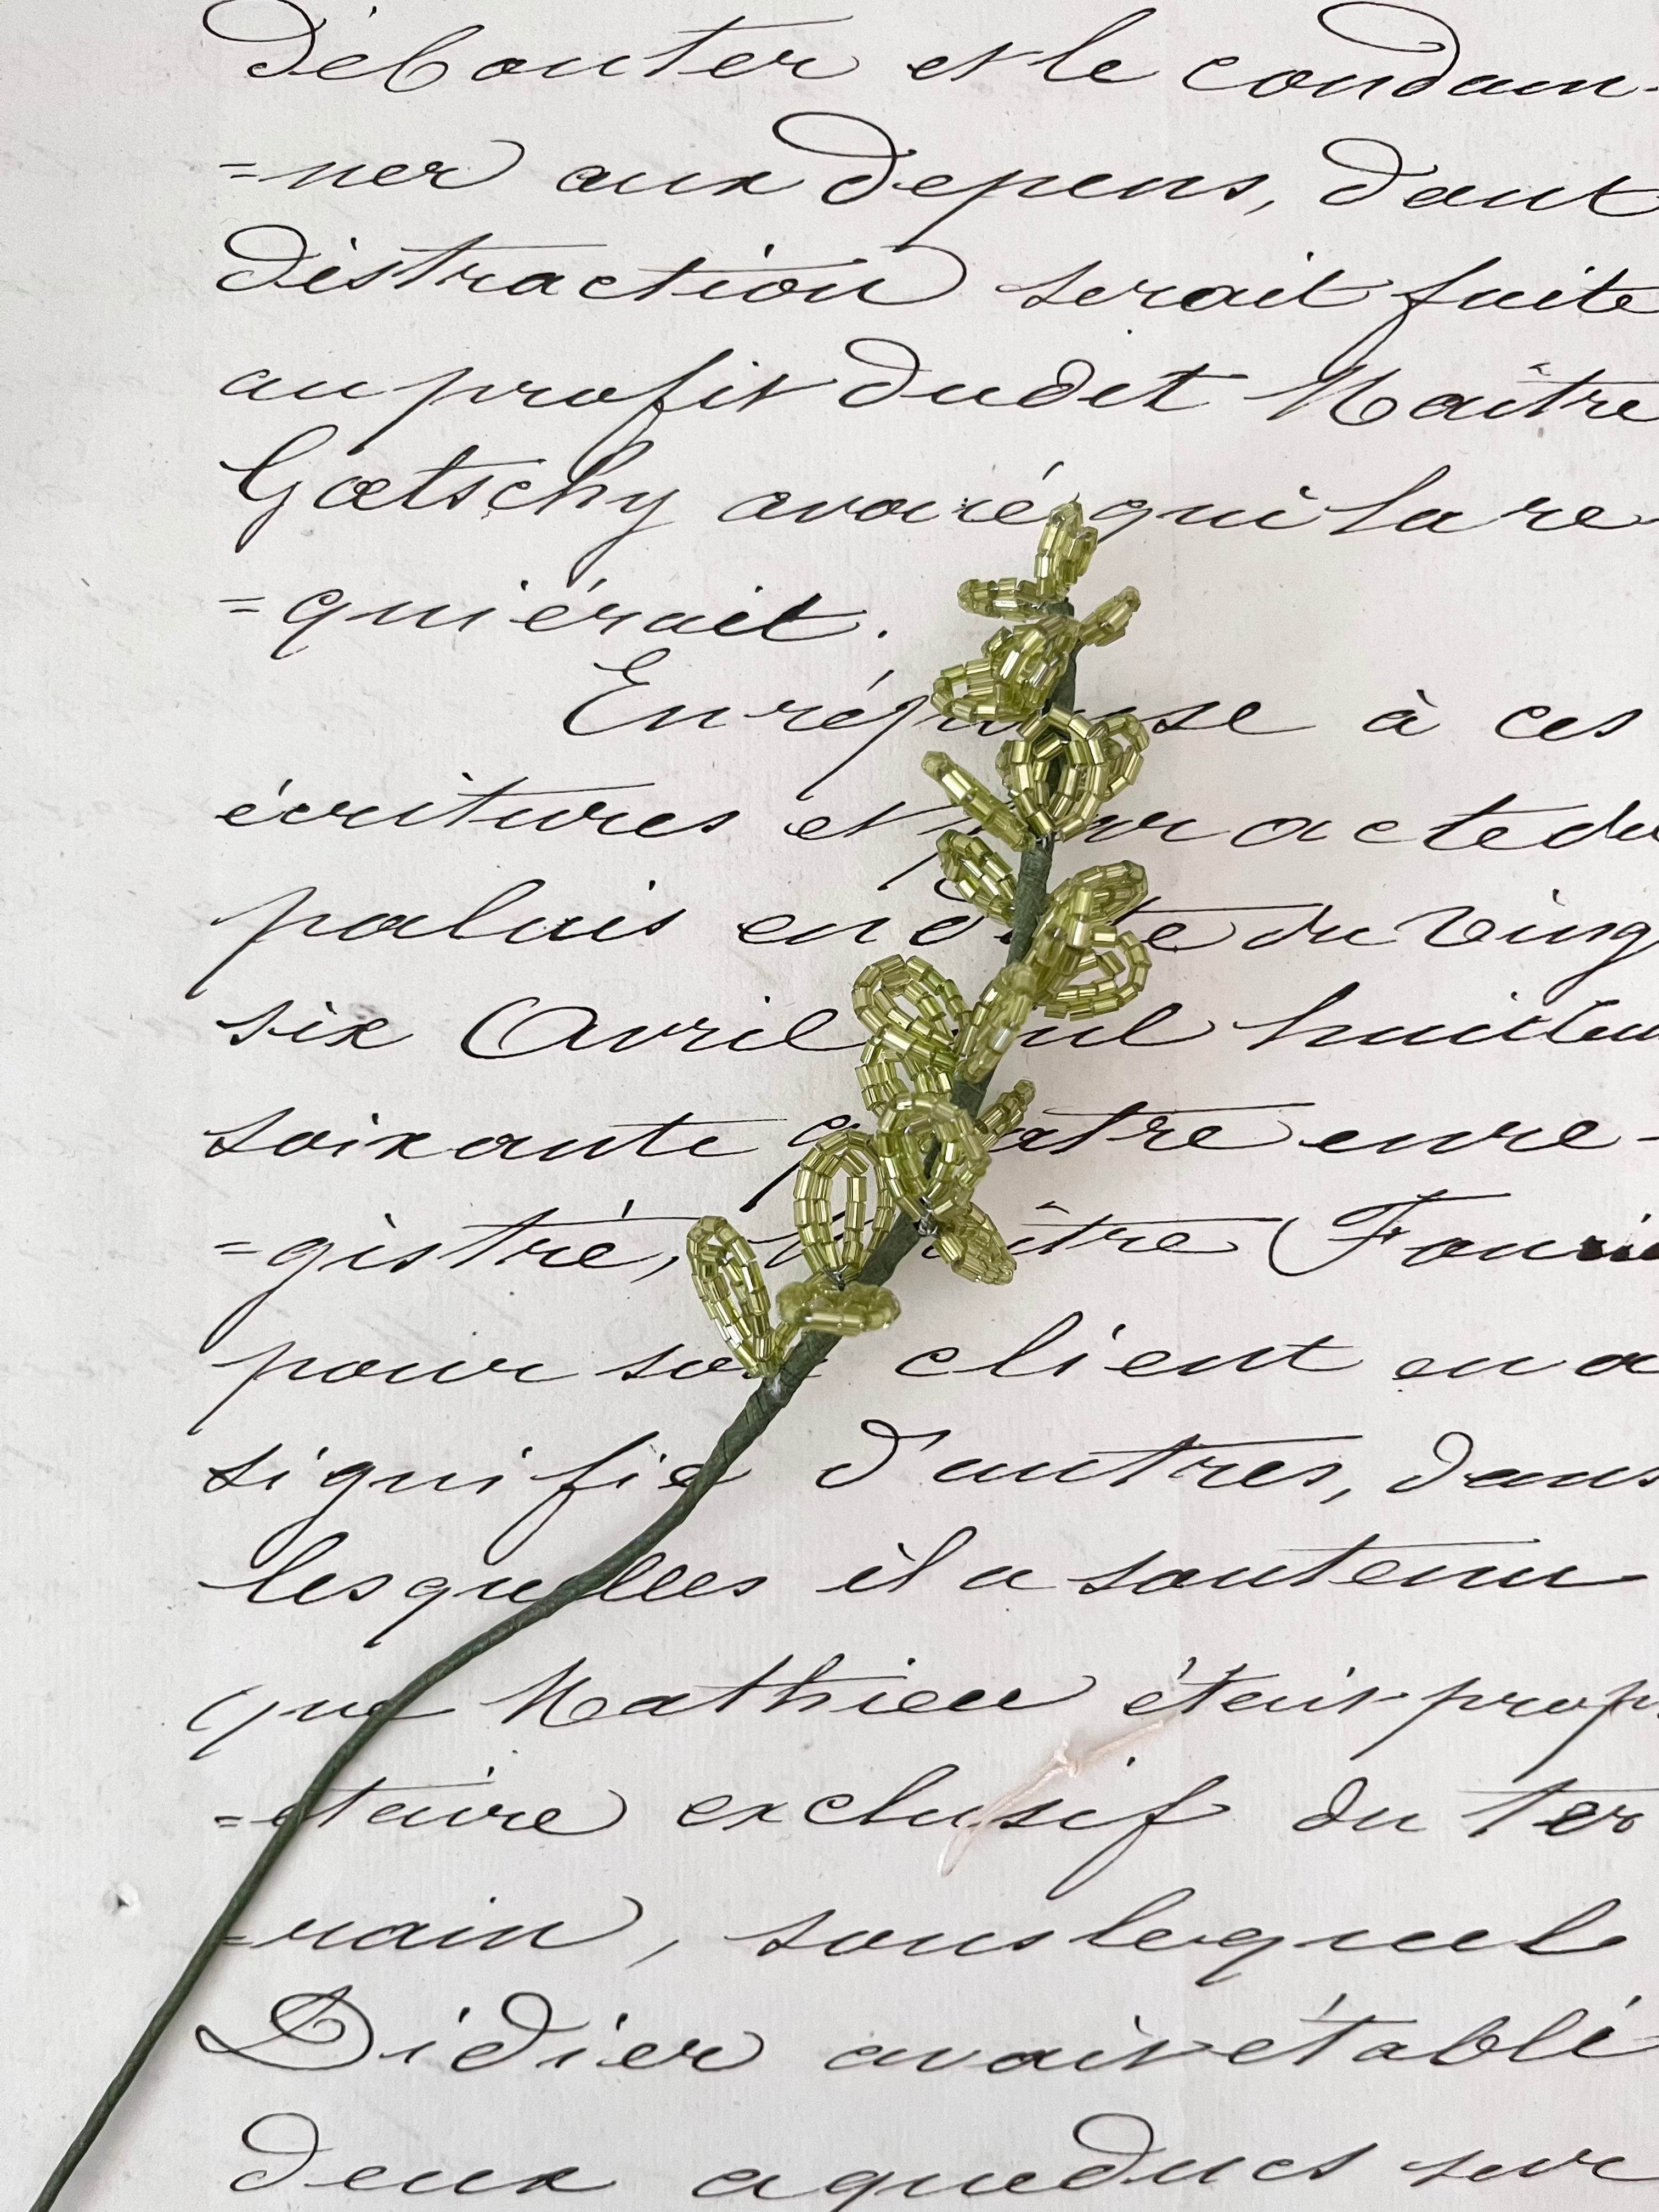 débouter et le condam-
=ner aux depens, dont
distraction serait faite
au profit dudit Maître
Gœtschy avoué qui la re
=quiérait.
En réponse à ces
écritures et par acte du
palais en date du Ving
six Avril mil huit cen
soixante quatre enre-
=gistré, Maître Fouri
pour son client en a
signifié d'autres, dans
lesquelles il a soutenu
que Mathieu était propr
=étaire exclusif du ter
=rain, sous lequel
Didier avait établi
deux aqueducs sur